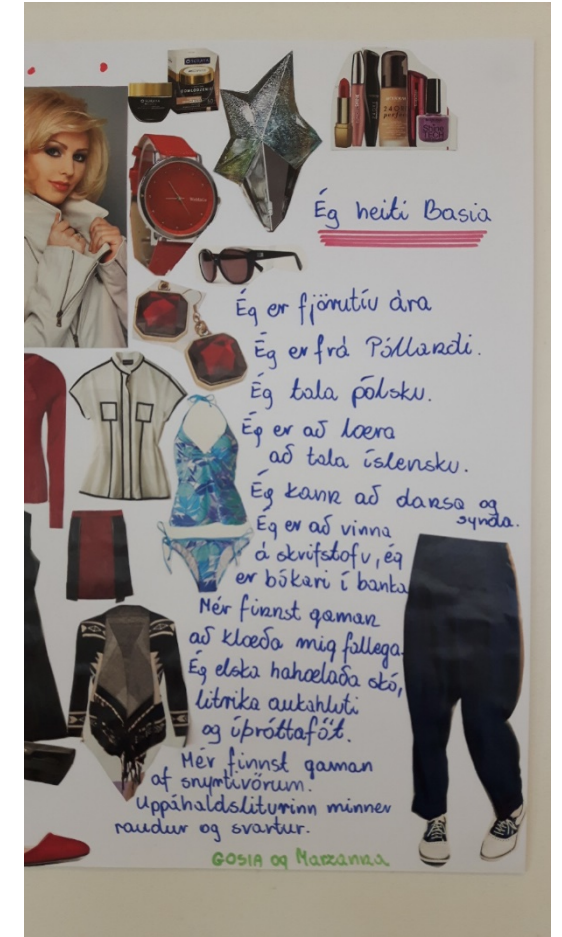 Ég heiti Basia
Ég er fjörutíu ára
Ég er frá Póllandi.
Ég tala pólsku.
Ég er að læra
að tala íslensku.
Ég kann að dansa og
synda.
Ég er að vinna
á skrifstofu, ég
er bókari í banka
Mér finnst gaman
að klæða mig fallega.
Ég elska hahælaða skó,
litrika aukahluti
og íþróttaföt.
Mér finnst gaman
af snyrtivörum.
Uppáhaldsliturinn minner
raudur og svartur.
GOSIA og Marzanna